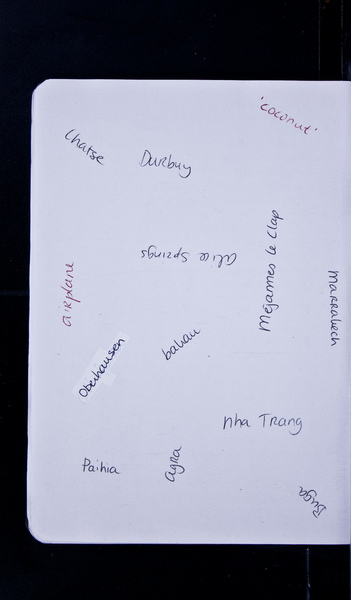 'coconut'
Chatse
Durbuy
Alice Springs
Méjannes le Clap
Marrakech
airplane
Oberhausen
bakau
Nha Trang
Paihia
agra
Buga